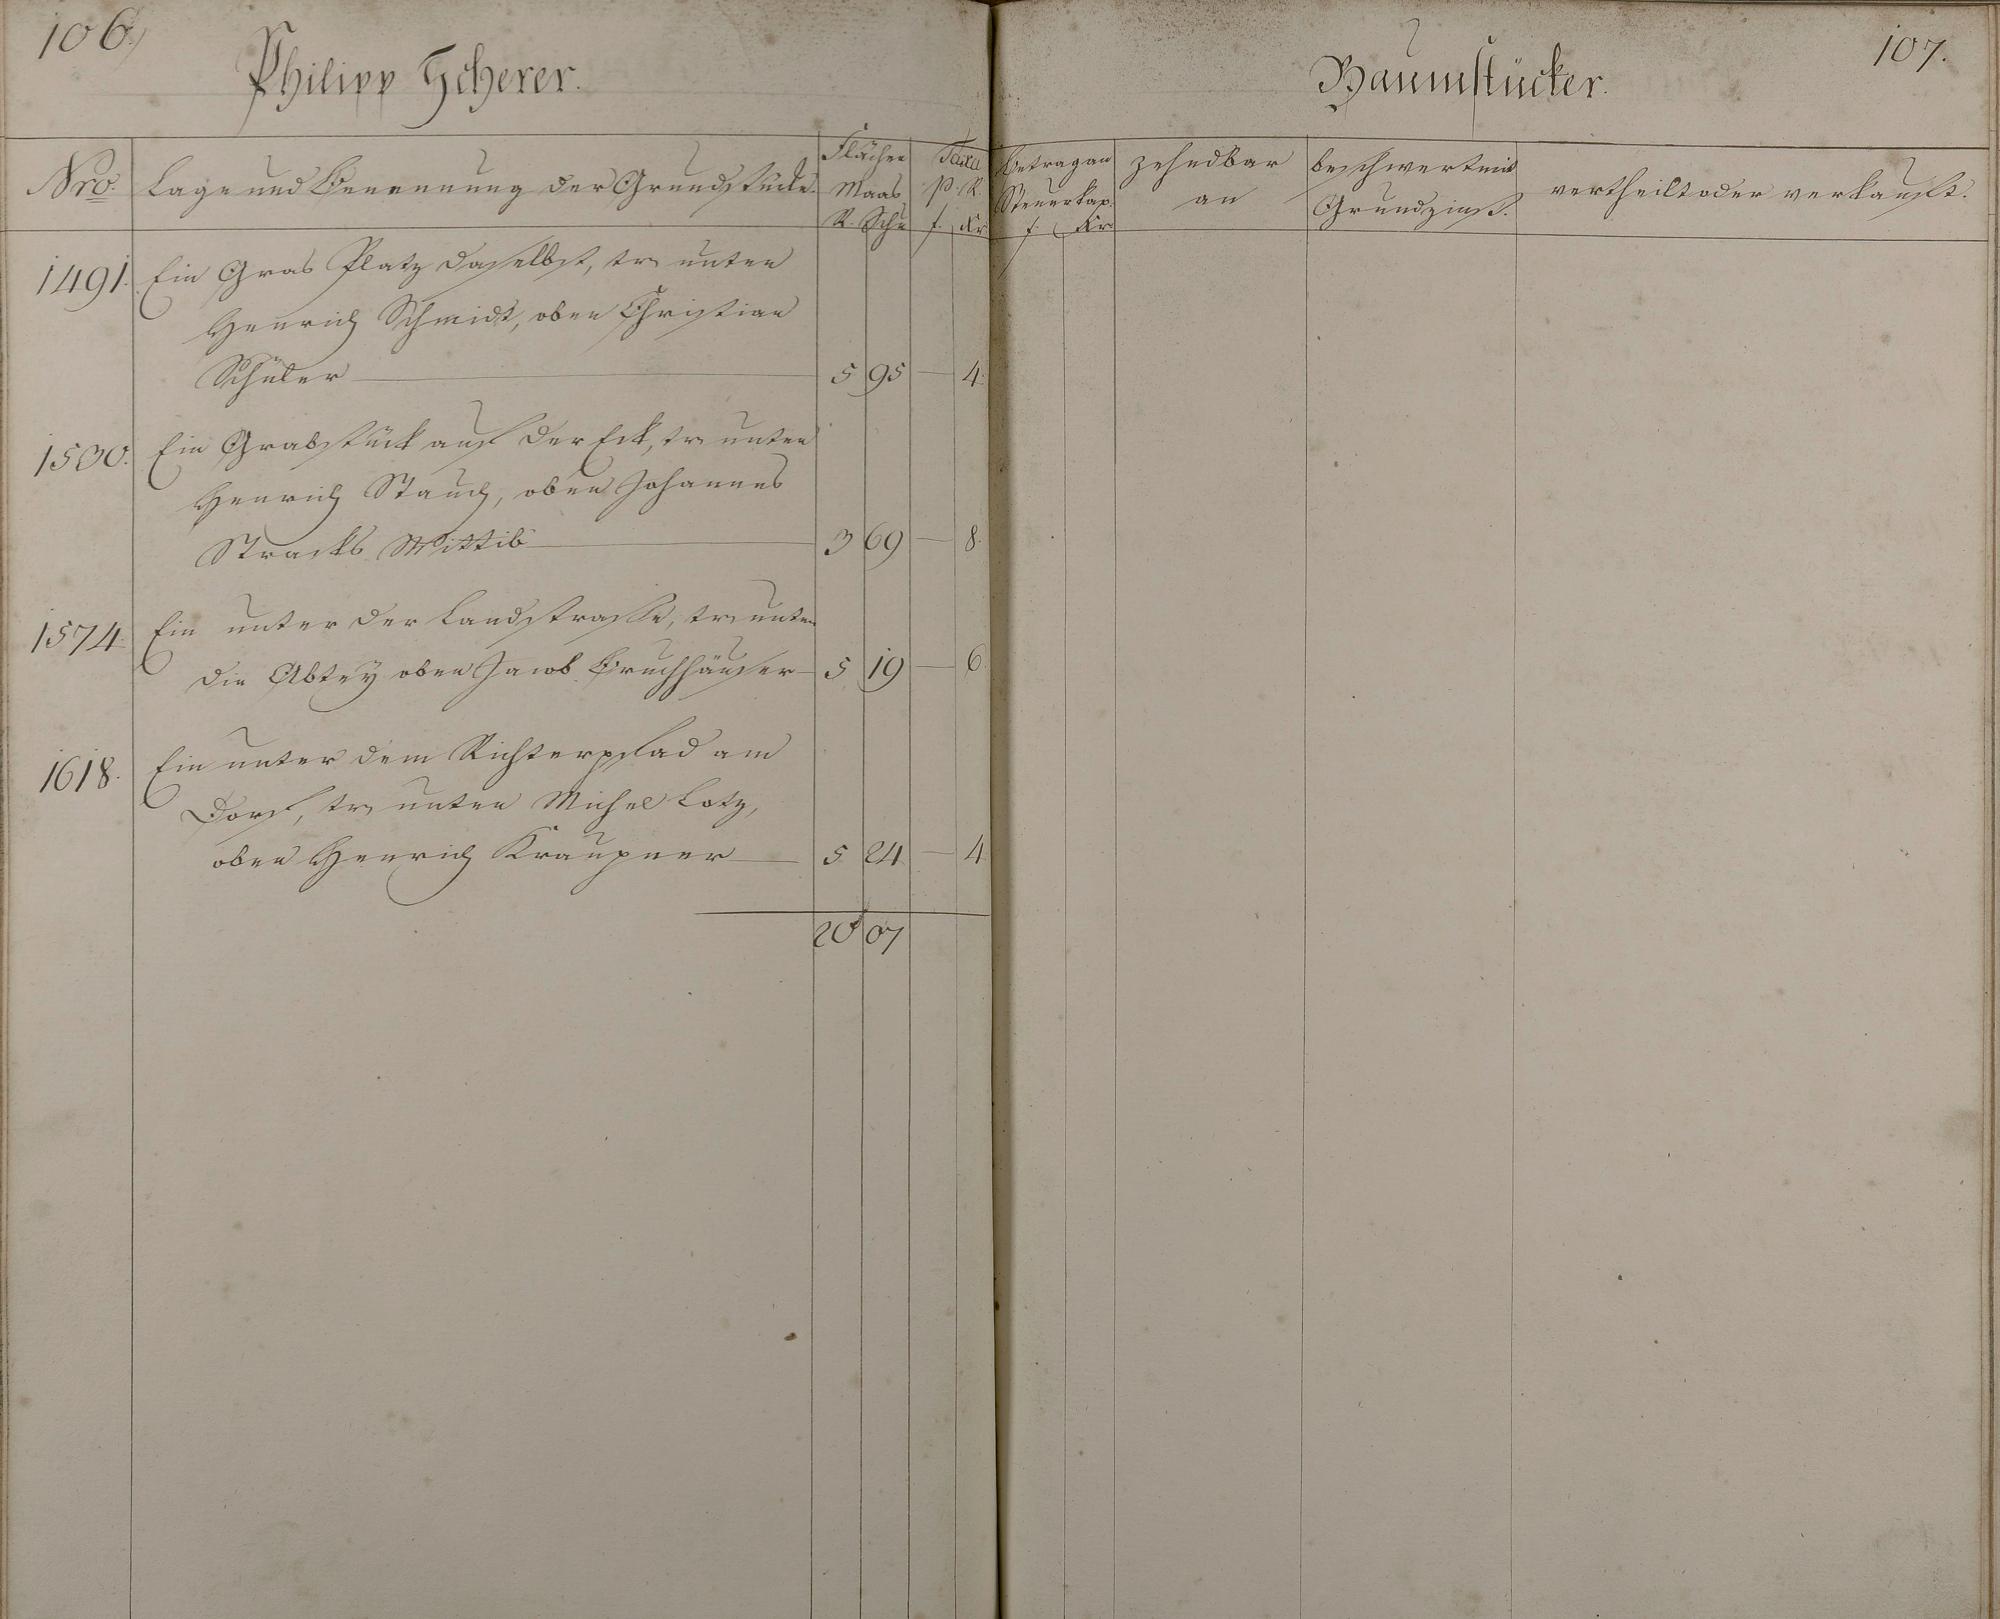 106.
Philipp Scherer.
Nro.
Lage und Benennung der Grundstücke.
Flächen
Maas
R. Schu
Taxa
p. R.
f. Kr
1491. Ein Gras Platz daselbst, tr unten
Henrich Schmidt, oben Christian
Schüler 5 95 — 4.
1530. Ein Grabstück auf der Eck, tr unten
Henrich Stauch, oben Johannes
Stracks Wittib 3 69 — 8.
1574. Ein unter der Landstrasse, tr unten
die Abtey oben Jacob Bruchhäuser 5 19 — 6.
1618. Ein unter dem Richterpfad am
Dorf, tr unten Michel Lotz,
oben Henrich Kraupner 5 24 — 4
20 07
107.
Baumstücker.
Betrag an
Steuerkap.
f. Kr
zehndbar
an
beschwert mit
Grundzinß.
vertheilt oder verkauft.